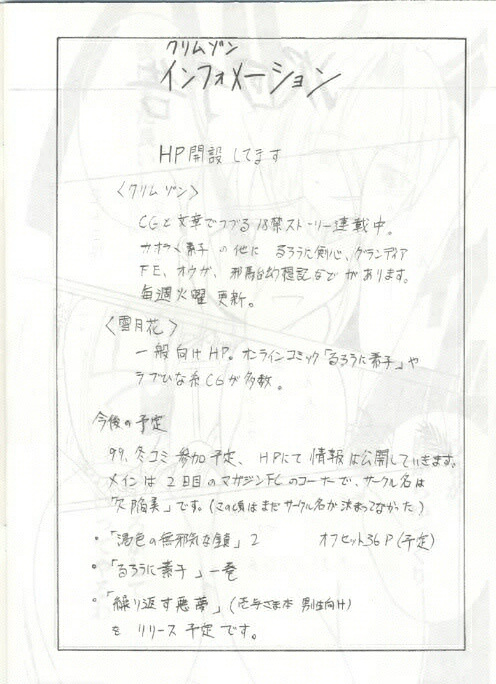 クリムゾン
インフォメーション
HP開設してます
〈クリムゾン〉
CGと文章でつづる18禁ストーリー連載中。
カオラ&素子の他に るろうに剣心、グランディア
FE、オウガ、邪馬台幻想記などがあります。
毎週火曜更新。
〈雪月花〉
一般向けHP。オンラインコミック「るろうに素子」や
ラブひな系CGが多数。
今後の予定
99,冬コミ参加予定、HPにて情報は公開していきます。
メインは2日目のマガジンFCのコーナーで、サークル名は
「欠陥美」です。(この頃はまだサークル名が決まってなかった)
・「褐色の無邪気な鎖」2 オフセット36P(予定)
・「るろうに素子」一巻
・「繰り返す悪夢」(壱与さま本 男性向け)
を リリース予定です。